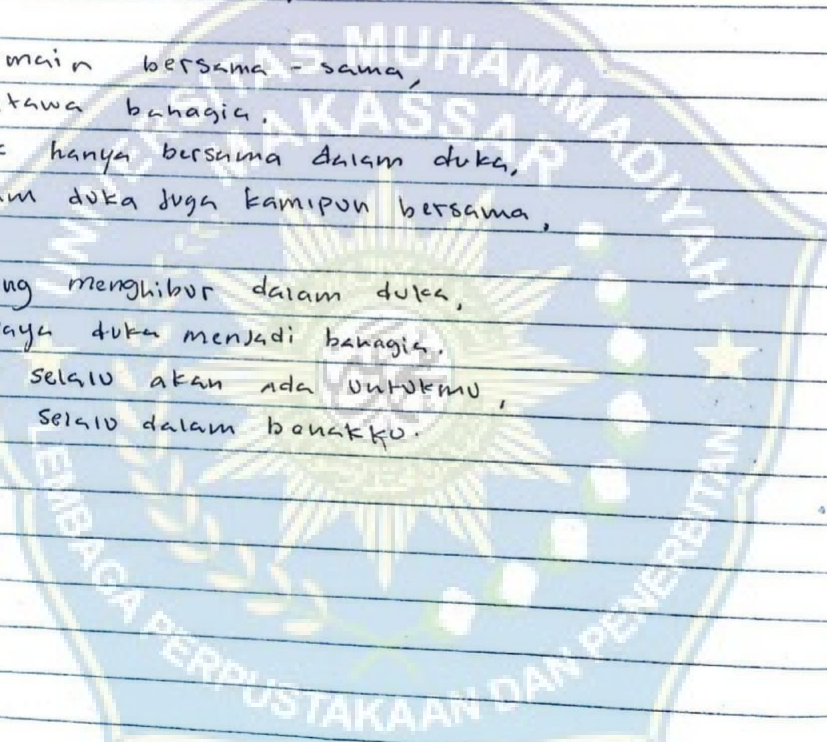 main bersama - sama,
tawa bahagia.
hanya bersama dalam duka,
m duka juga kamipun bersama,
ng menghibur dalam duka,
aya duka menjadi bahagia.
selalu akan ada untukmu,
selalu dalam benakku.
UNIVERSITAS MUHAMMADIYAH
MAKASSAR
LEMBAGA PERPUSTAKAAN DAN PENERBITAN